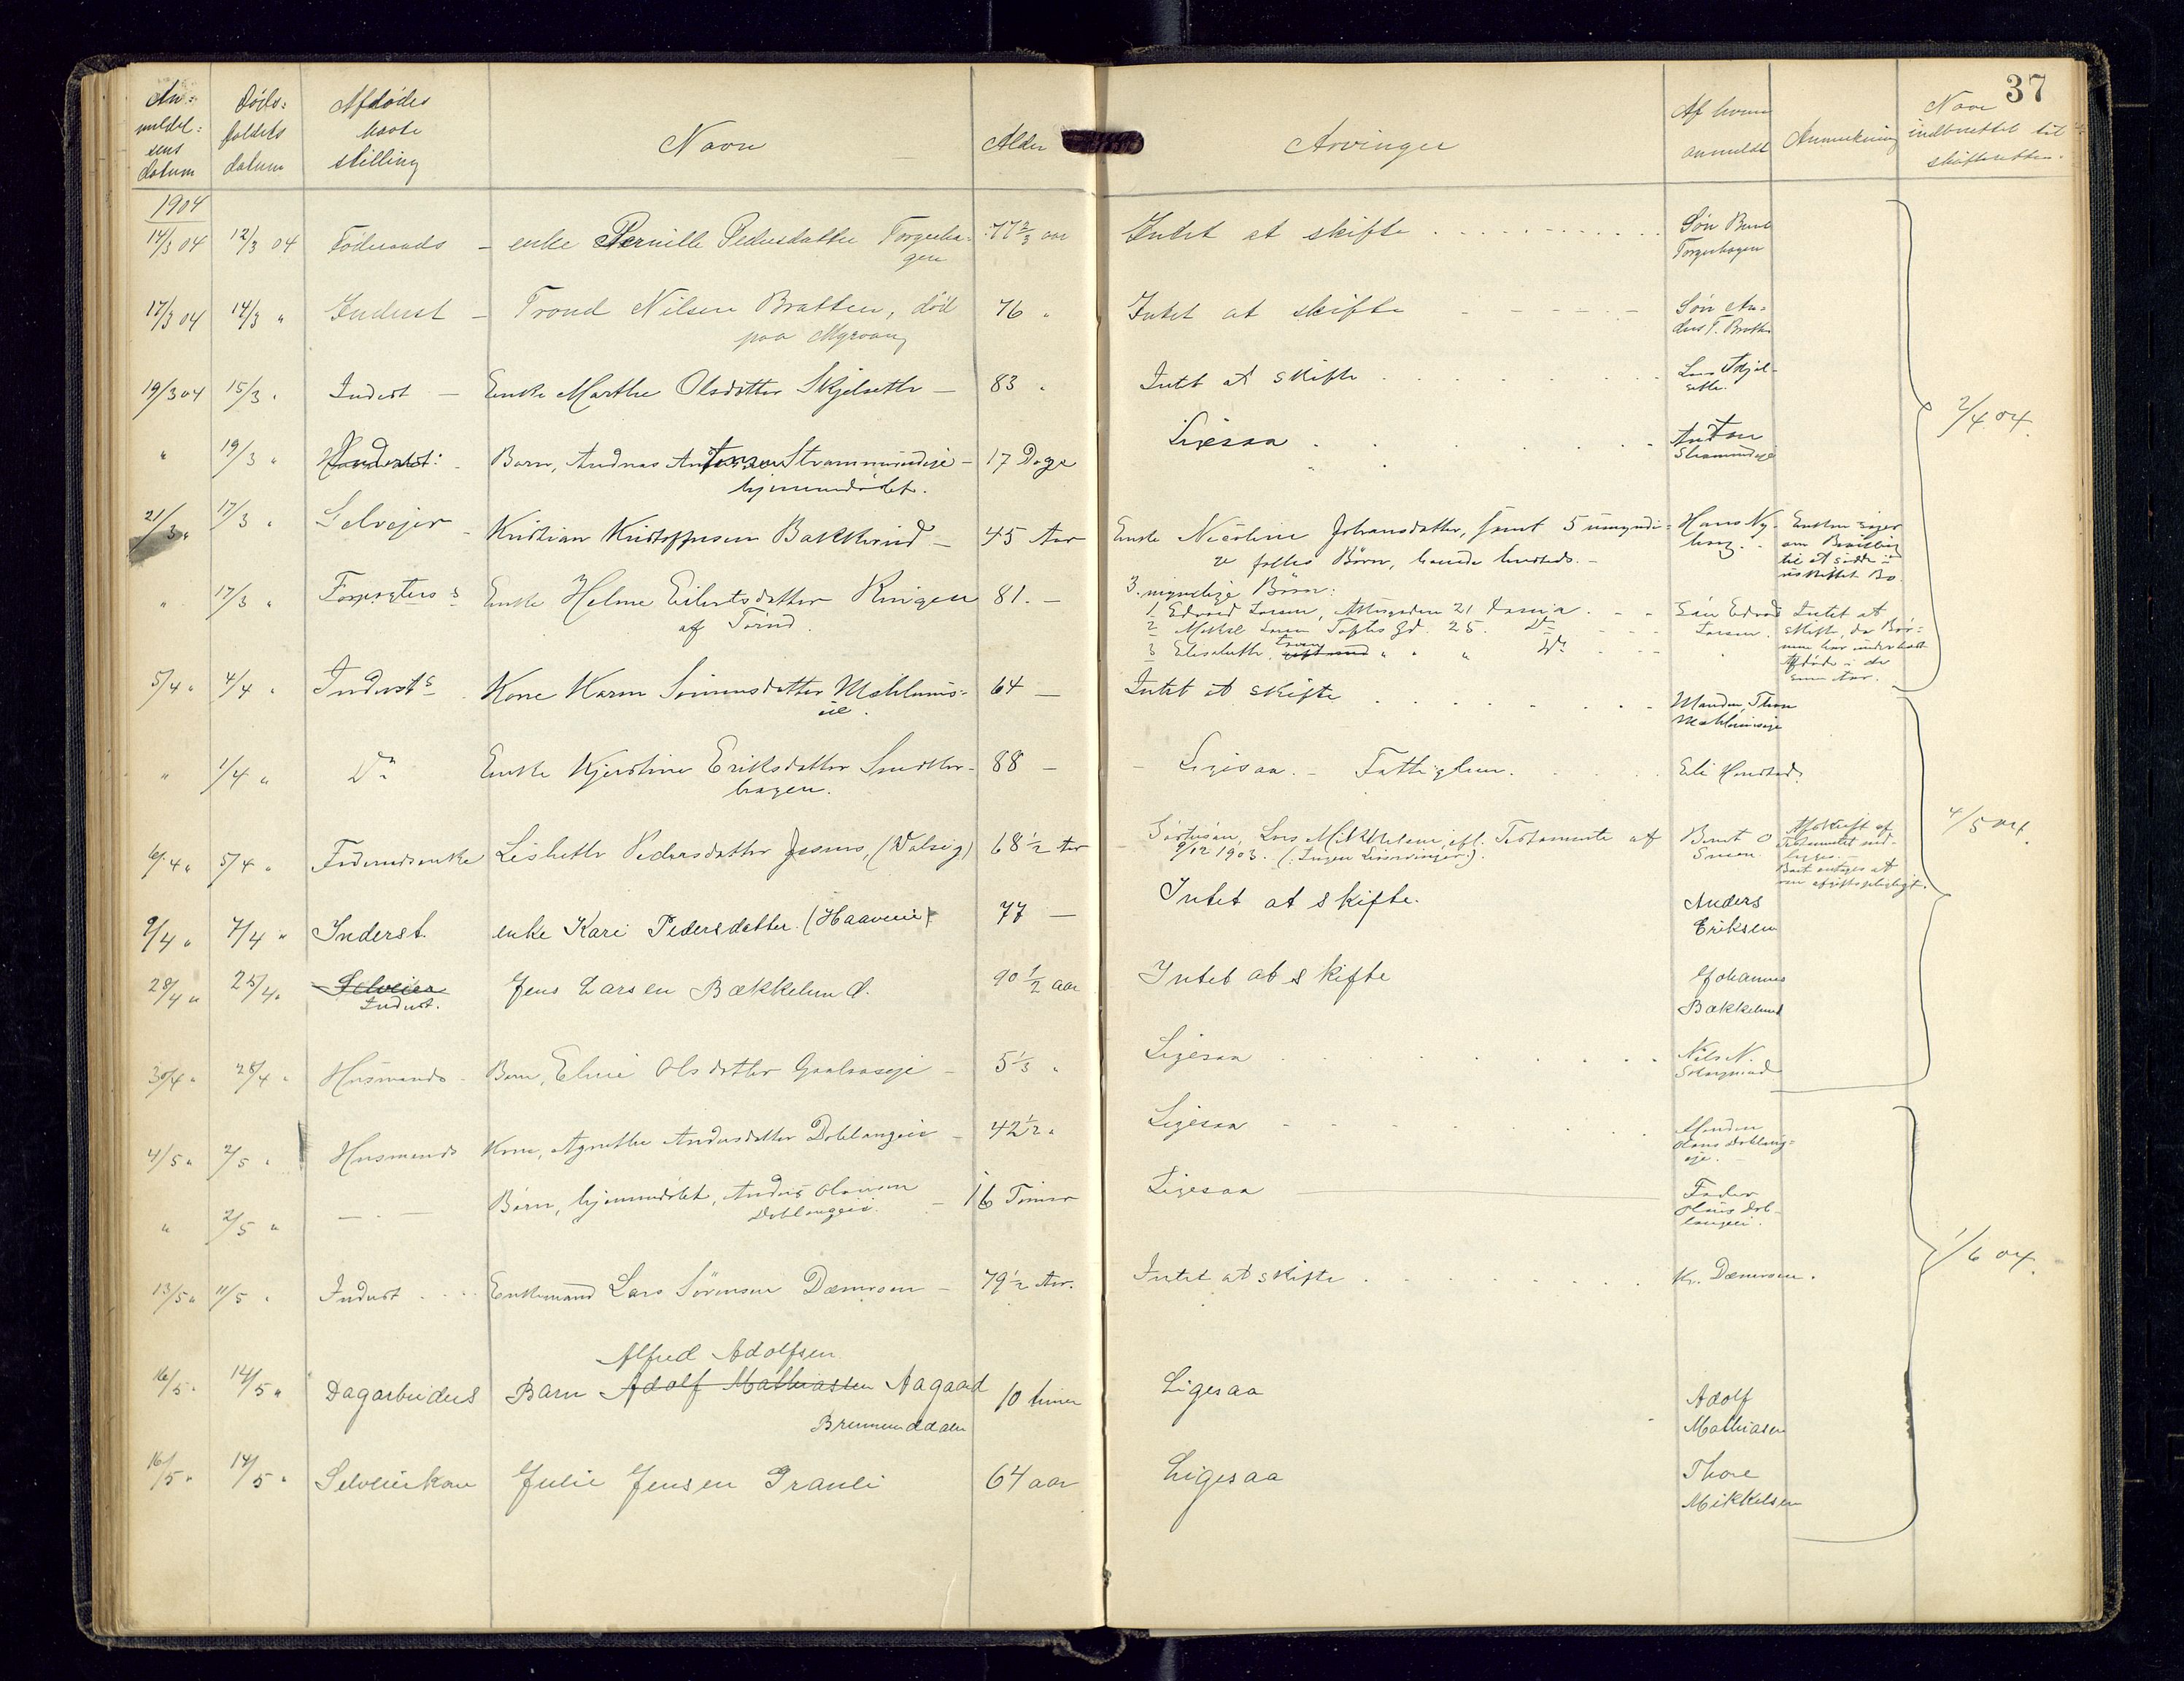 37
An-
meldel-
sens
datum
Døds-
faldets
datum
Afdødes
stilling
Navn
Alder
Arvinger
Af hvem
anmeldt
Anmerkning
Naar
indberettet til
skifteretten.
1904
14/3 04 12/3 04 Føderaads - enke Pernille Pedersdatter Torgerha-
gen
77 2/3 aar Intet at skifte Søn Bernt
Torgerhagen
17/3 04 14/3 " Inderst - Trond Nilsen Bratten, død
paa Myrvang
76 " Intet at skifte Søn An-
ders T. Bratten
19/3 04 15/3 " Inderst - Enke Marthe Olsdatter Skjelseth - 83 " Intet at skifte Lars Skjel-
seth.
" 19/3 " Barn, Andreas Antonsen Strømmundeje - 17 Dage Ligesaa Anton
Strømmundeje
hjemmedøbt.
21/3 " 17/3 " Selvejer - Kristian Kristoffersen Bakkerud - 45 Aar Enke Nicoline Johansdatter, samt 5 umyndi-
ge fælles Børn, Hans Ny-
haug. Enken siger
om Bevilling
til at sidde i
uskiftet Bo.
" 17/3 " Enke Helene Eilertsdatter Ringen
af Torud.
81. - 3 myndige Børn:
1 Edvard Larsen, 21
2 25. Do
3 Elisabeth Do
Søn Edvard
Larsen. Intet at
skifte, da Bør-
nene har underholdt
Afdøde i de
sene Aar.
5/4 " 4/4 " Inderst s Kone Karen Simensdatter Mæhlums-
eie.
64 - Intet at skifte Manden, Thore
Mæhlumseje
" 1/4 " Do Enke Kjerstine Eriksdatter Smedker-
hagen.
88 - - Ligesaa. - Fattiglem. Eli Honstad.
6/4 " 5/4 " Føderaadsenke Lisbeth Pedersdatter (Dalseg) 68 1/2 Aar Søstersøn, Lars Mikkelsen, efl. Testamente af
9/12 1903. (: Ingen Livsarvinger:).
Bernt O
Afskrift af
Testamentet ved-
lægges. -
Boet antages at
være afgiftspligtigt.
9/4 " 7/4 " Inderst. enke Kari Pedersdatter. (Haaveeie) 77 - Intet at skifte. Anders
Eriksen
28/4 " 25/4 " Selveier
Inderst.
Jens Larsen Bækkelund. 90 1/2 aar Intet at skifte Johannes
Bækkelund
30/4 " 28/4 " Husmands - Barn, Eline Olsdatter Gaalaaseje - 5 1/3 " Ligesaa Nils N.
4/5 " 2/5 " Husmands Kone, Agnethe Andersdatter Doblangeie - 42 1/2 " Ligesaa Manden
Olaus Doblang-
eje. -
" 2/5 " - - - Barn, hjemmedøbt, Anders Olausen
Doblangeie.
- 16 Timer Ligesaa Fader
Olaus Dob-
langeie.
13/5 " 11/5 " Inderst Enkemand Lars Sørensen Dæmroen - 79 1/2 Aar. Intet at skifte Kr. Dæmroen.
Alfred Adolfsen
16/5 " 14/5 " Dagarbeiders Barn Adolf Mathiassen Aagaard
Bremunddalen
10 timer Ligesaa Adolf
Mathiasen
16/5 " 14/5 " Selveierkone Julie Jensen Granli 64 aar Ligesaa Thore
Mikkelsen
2/4 04.
4/5 04.
1/6 04.